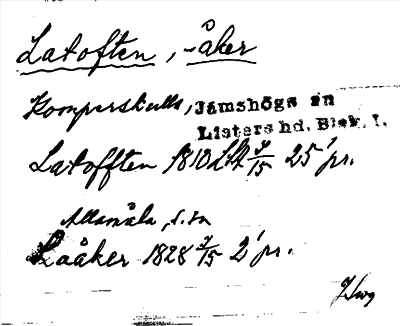 Latoften, -åker
Komperskulla, Jämshögs sn
Listers hd. Blek. l.
Latofften 1810 LSA 3/15 25 pr.
Allamåla, s. sn
Laåker 1828 3/15 2 pr.